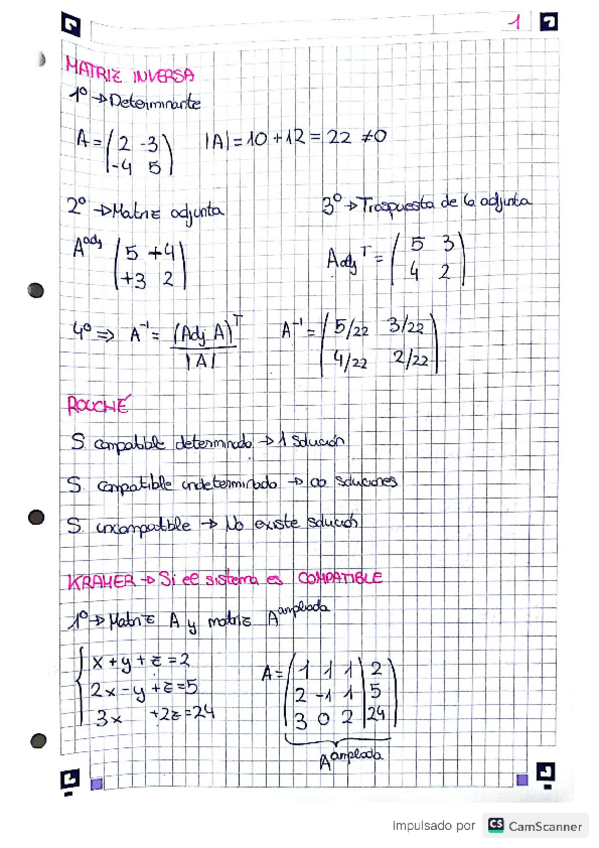 1
MATRIZ INVERSA
1º → Determinante
A = ( 2 -3 ) |A| = 10 + 12 = 22 ≠ 0
( -4 5 )
2º → Matriz adjunta
3º → Traspuesta de la adjunta
A^adj ( 5 +4 )
( +3 2 )
Adj^T = ( 5 3 )
( 4 2 )
4º ⇒ A^-1 = (Adj A)^T / |A|
A^-1 = ( 5/22 3/22 )
( 4/22 2/22 )
ROUCHÉ
S. compatible determinado → 1 solución
S. compatible indeterminado → ∞ soluciones
S. incompatible → No existe solución
KRAMER → Si el sistema es COMPATIBLE
1º → Matriz A y matriz A^ampliada
{ x + y + z = 2
2x - y + z = 5
3x + 2z = 24
A = ( 1 1 1 | 2 )
( 2 -1 1 | 5 )
( 3 0 2 | 24 )
A^ampliada
Impulsado por CS CamScanner